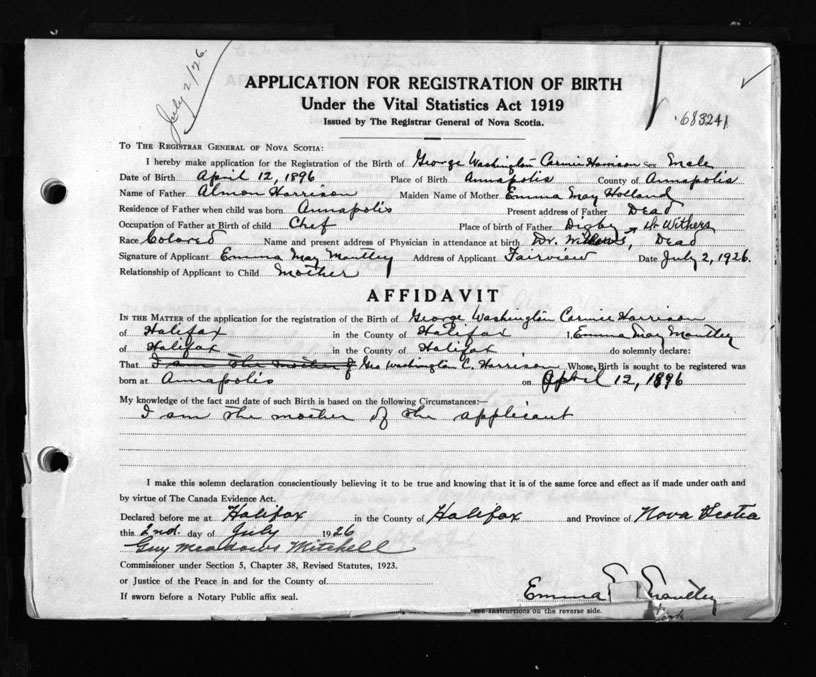 July 2/26.
APPLICATION FOR REGISTRATION OF BIRTH
Under the Vital Statistics Act 1919
Issued by The Registrar General of Nova Scotia.
683241
TO THE REGISTRAR GENERAL OF NOVA SCOTIA:
I hereby make application for the Registration of the Birth of George Washington Carmie Harrison Sex Male
Date of Birth April 12, 1896 Place of Birth Annapolis County of Annapolis
Name of Father Almon Harrison Maiden Name of Mother Emma May Holland
Residence of Father when child was born Annapolis Present address of Father Dead
Occupation of Father at Birth of child Chef Place of birth of Father Digby Dr Withers
Race Colored Name and present address of Physician in attendance at birth Dr. Withers, Dead
Signature of Applicant Emma May Mantley Address of Applicant Fairview Date July 2, 1926.
Relationship of Applicant to Child Mother
AFFIDAVIT
IN THE MATTER of the application for the registration of the Birth of George Washington Carmie Harrison
of Halifax in the County of Halifax I, Emma May Mantley
of Halifax in the County of Halifax, do solemnly declare:
That I am the mother of Geo Washington C. Harrison Whose Birth is sought to be registered was
born at Annapolis on April 12, 1896
My knowledge of the fact and date of such Birth is based on the following Circumstances:—
I am the mother of the applicant
I make this solemn declaration conscientiously believing it to be true and knowing that it is of the same force and effect as if made under oath and
by virtue of The Canada Evidence Act.
Declared before me at Halifax in the County of Halifax and Province of Nova Scotia
this 2nd. day of July 1926
Guy Meadows Mitchell
Commissioner under Section 5, Chapter 38, Revised Statutes, 1923.
or Justice of the Peace in and for the County of
If sworn before a Notary Public affix seal.
Emma Mantley
see instructions on the reverse side.